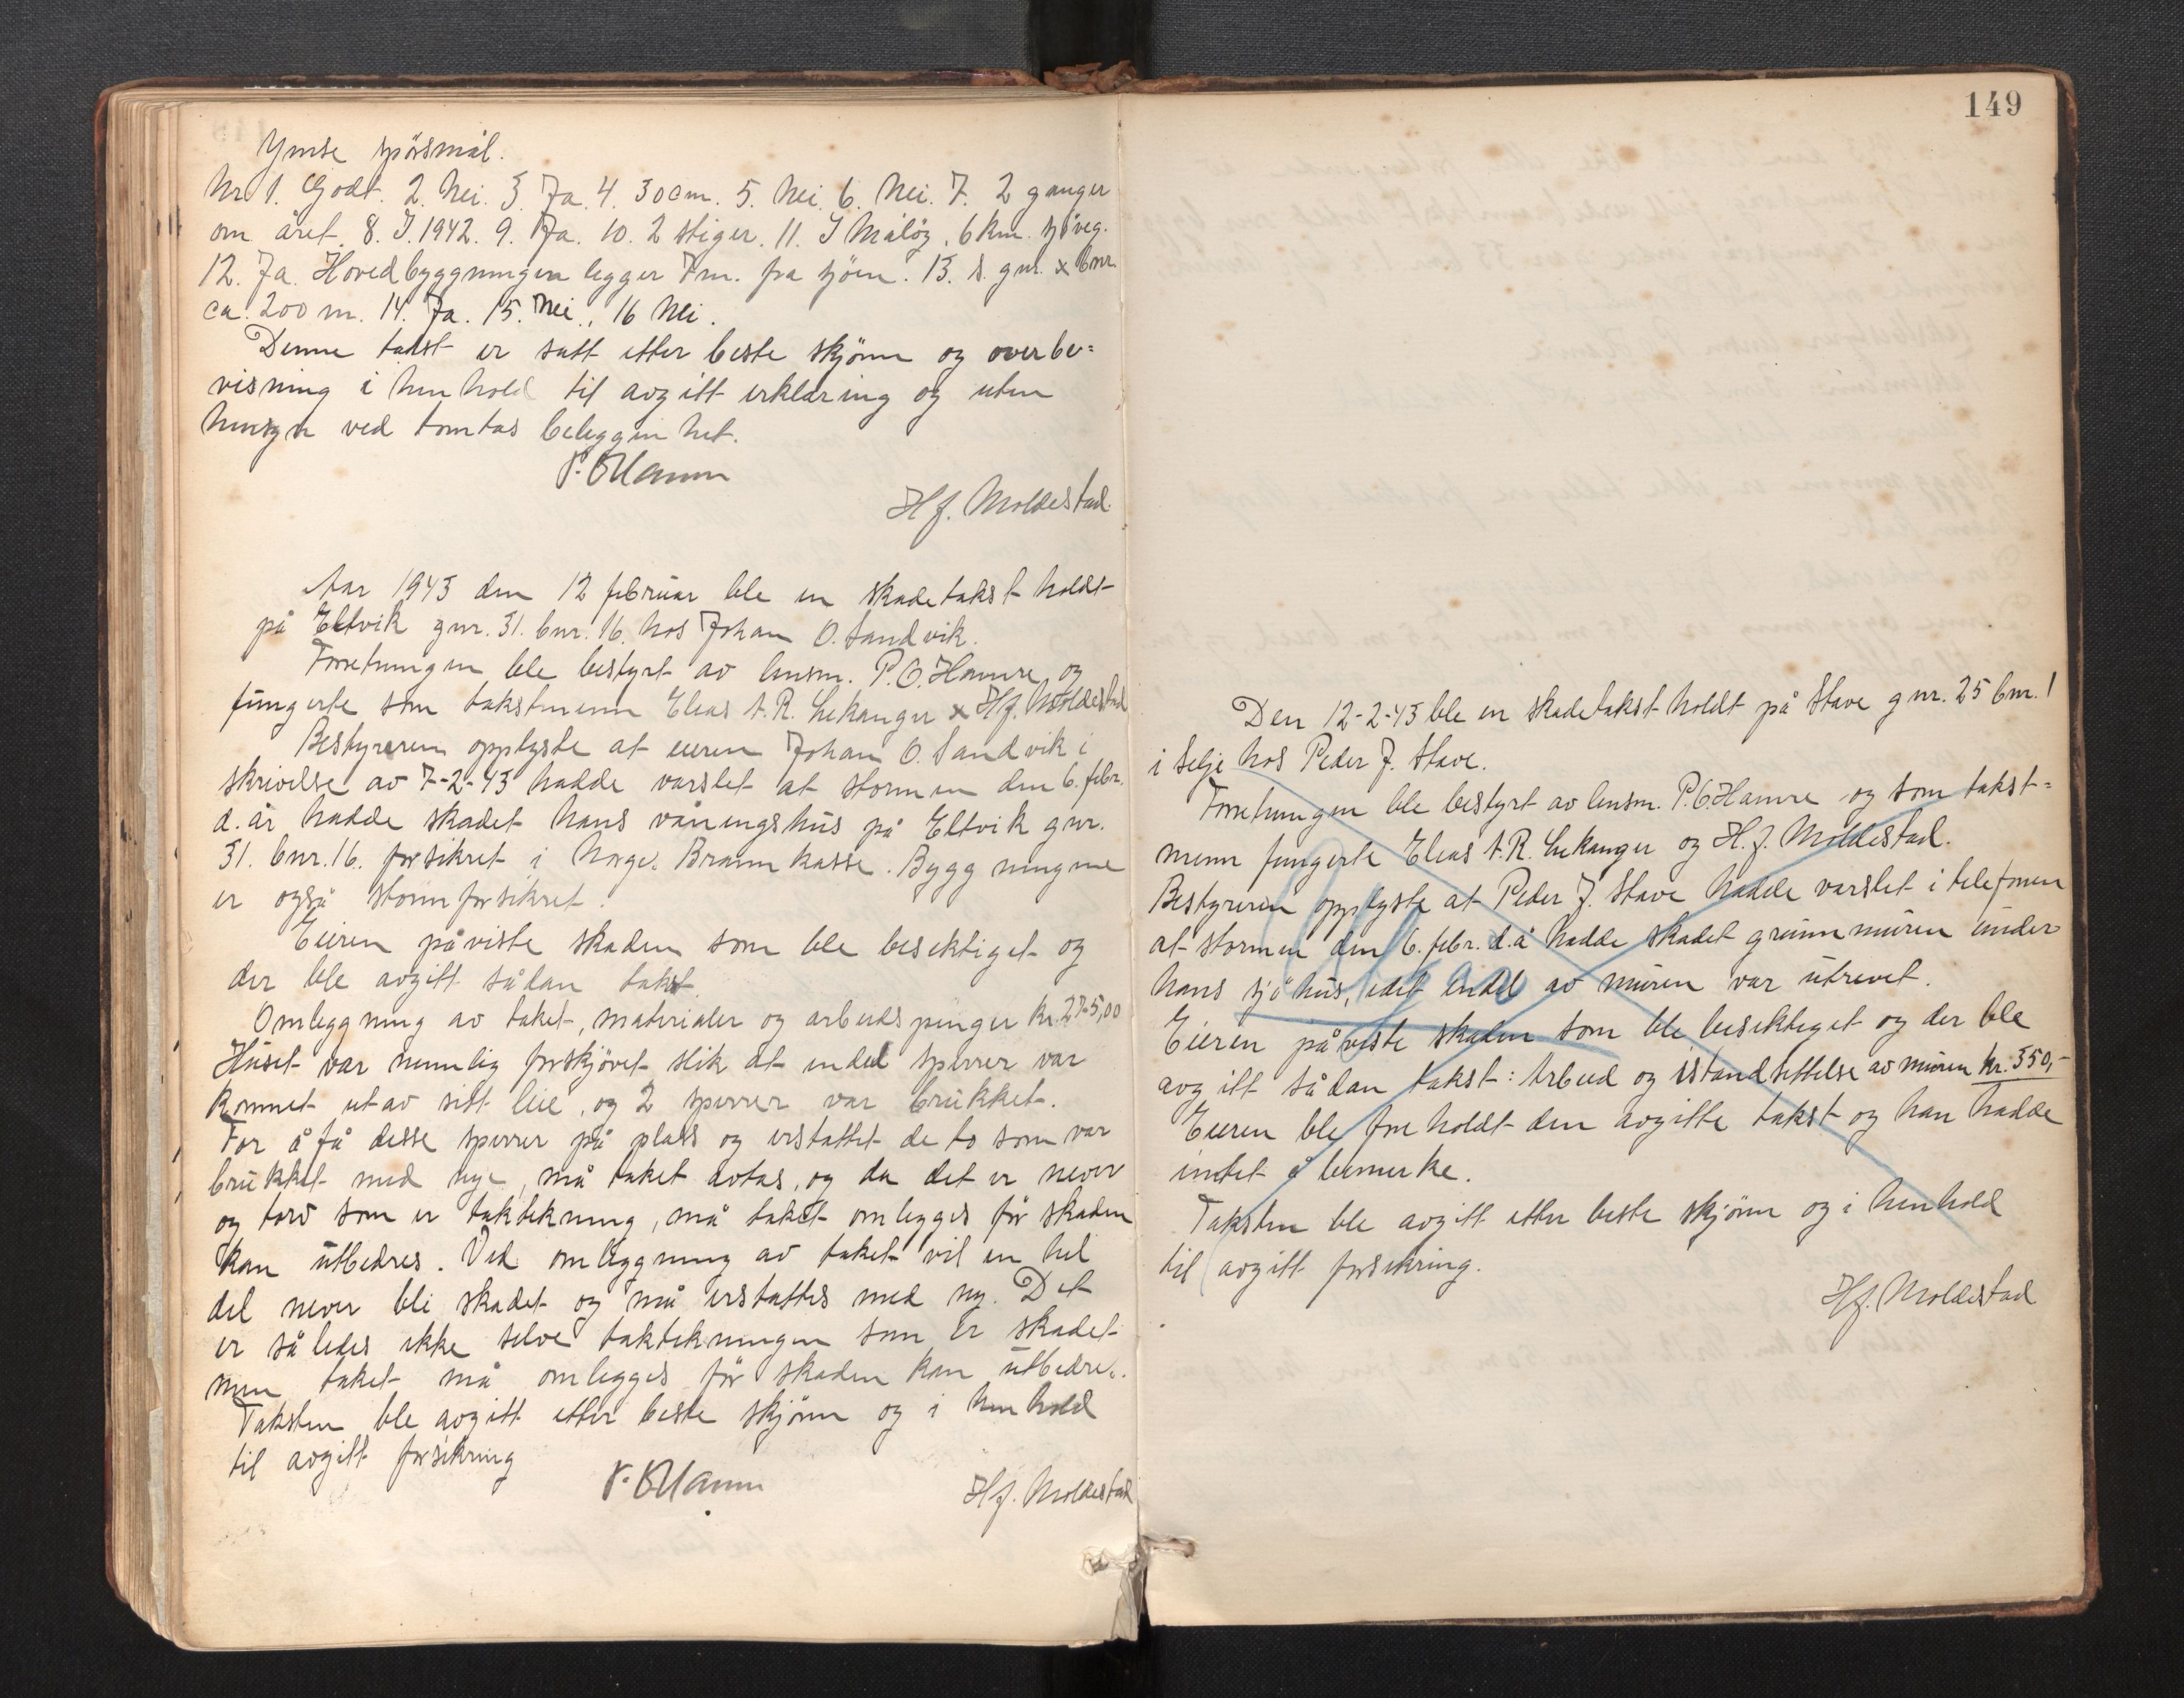 Ymse spörsmål.
Nr 1. Godt. 2. Nei. 3. Ja. 4. 30 cm. 5. Nei. 6. Nei. 7. 2 ganger
om året. 8. I. 1942. 9. Ja. 10. 2 stiger. 11. I Målöy, 6 km. sjöveg.
12. Ja. Hovedbyggningen legger 7 m. fra sjöen. 13. s. gnr. x bnr.
ca. 200 m. 14. Ja. 15. Nei., 16 Nei.
Denne takst er satt etter beste skjönn og overbe=
visning i henhold til avgitt erklæring og uten
hensyn ved tomtas beleggenhet.
P. O Hamre
H J. Moldestad.
Aar 1943 den 12 februar ble en skadetakst holdt
på Eltvik gnr. 31. bnr. 16. hos Johan O. Sandvik.
Forretningen ble bestyrt av lensm. P. O. Hamre og
fungerte som takstmenn Elias A. R. Lekanger x H J. Moldestad
Bestyreren opplyste at eieren Johan O. Sandvik i
skrivelse av 7-2-43 hadde varslet at stormen den 6. febr.
d. år hadde skadet hans våningshus på Eltvik gnr.
31. bnr. 16. forsikret i Norges Brannkasse. Byggningene
er også stormforsikret.
Eieren påviste skaden som ble besiktiget og
der ble avgitt sådan takst.
Omleggning av taket, materialer og arbeidspenger kr. 275,00
Huset var nemlig forskjövet slik at endel sperrer var
kommet ut av sitt leie, og 2 sperrer var brukket.
For å få desse sperrer på plass og erstattet de to som var
brukket med nye, må taket avtas, og da det er never
og torv som er taktekning, må taket omlegges för skaden
kan utbedres. Ved omleggning av taket vil en hel
del never bli skadet og må erstattes med ny. Det
er således ikke selve taktekningen som er skadet
men taket må omlegges för skaden kan utbedres.
Taksten ble avgitt etter beste skjönn og i henhold
til avgitt forsikring
P. O Hamre
H J. Moldestad
149
Den 12-2-43 ble en skadetakst holdt på Stave gnr. 25 bnr. 1
i Selje hos Peder J. Stave.
Forretningen ble bestyrt av lensm. P. O. Hamre og som takst=
menn fungerte Elias A. R. Lekanger og H. J. Moldestad.
Bestyreren opplyste at Peder J. Stave hadde varslet i telefonen
at stormen den 6. febr. d. å hadde skadet grunnmuren under
hans sjöhus, idet endel av muren var utrevet.
Eieren påviste skaden som ble besiktiget og der ble
avgitt sådan takst: Arbeid og istandsettelse av muren kr. 350,-
Eieren ble foreholdt den avgitte takst og han hadde
intet å bemerke.
Taksten ble avgitt etter beste skjönn og i henhold
til avgitt forsikring.
H J. Moldestad